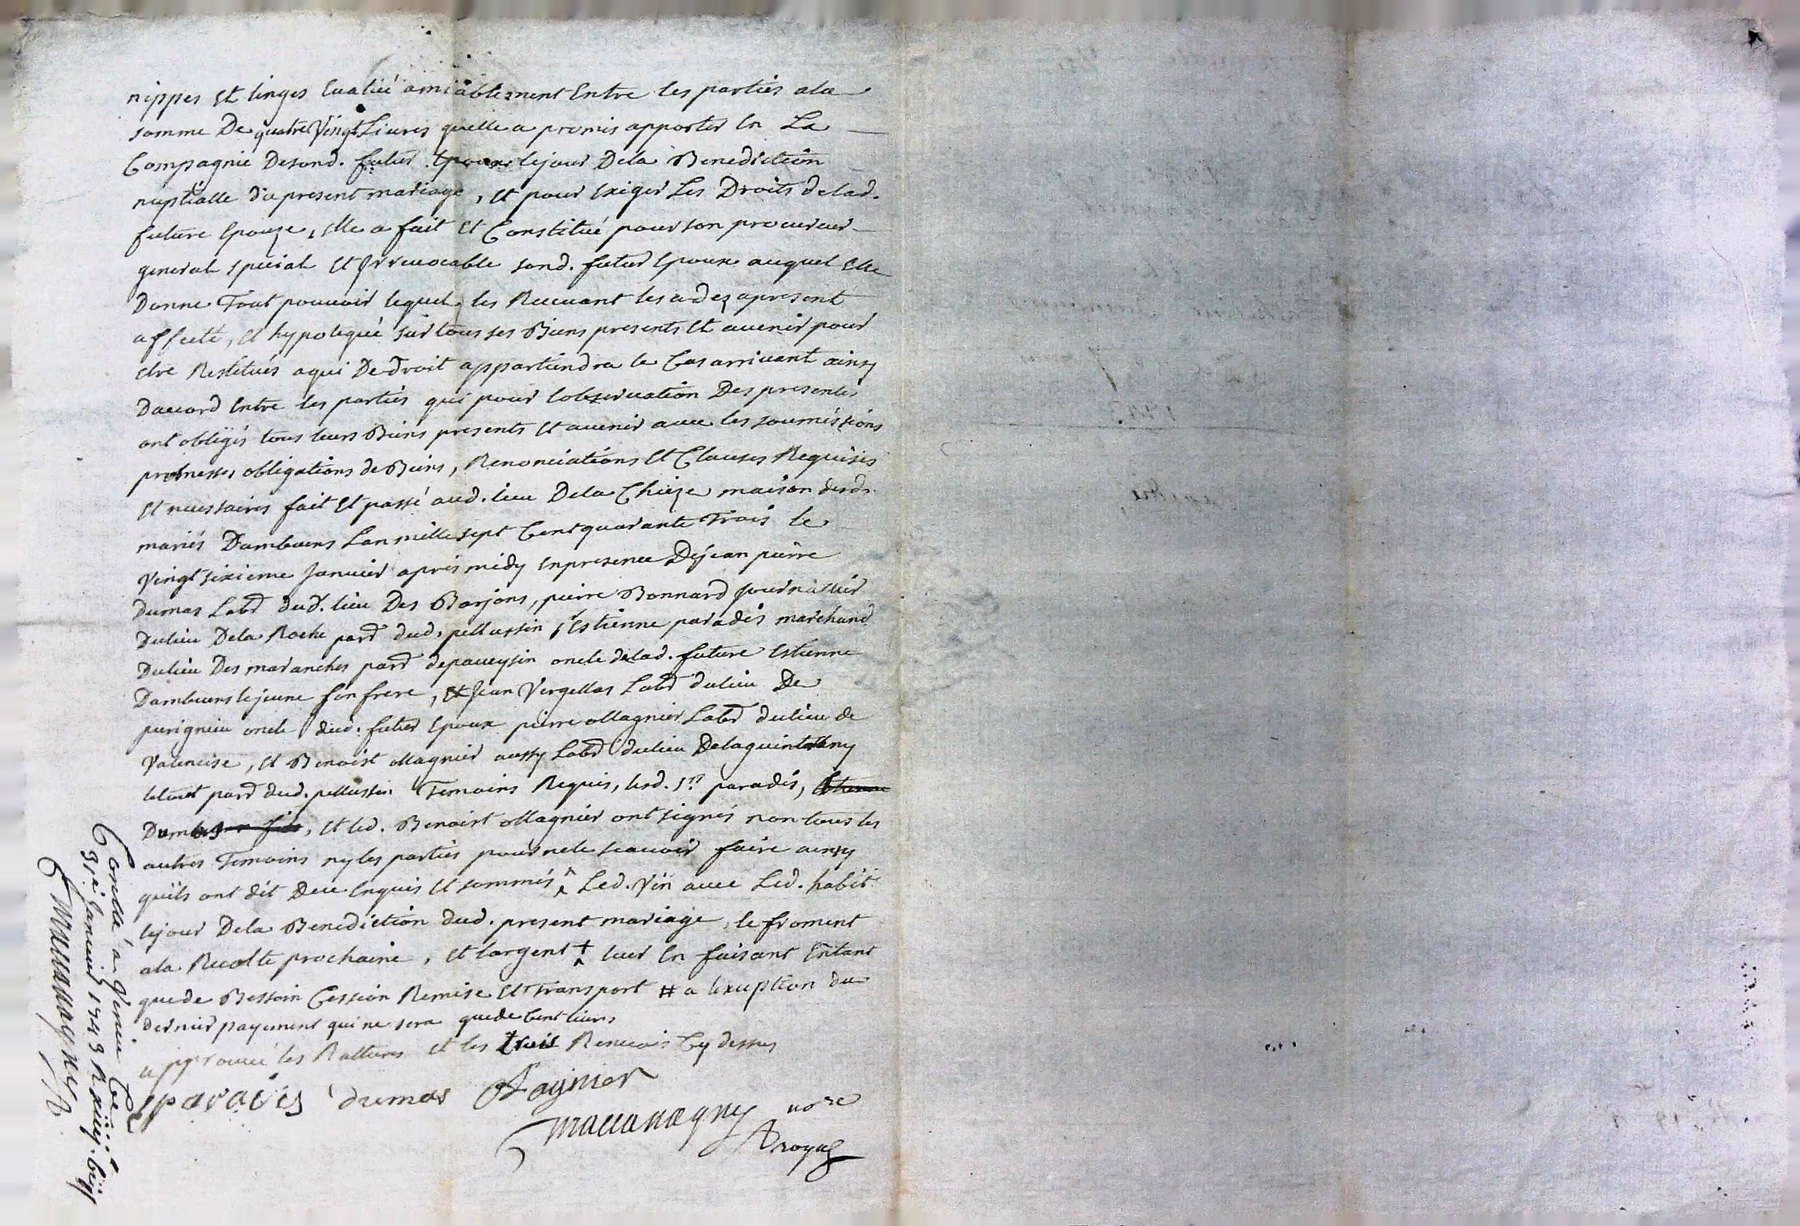 nippes et linges Evalué amiablement Entre les parties ala
somme De quatre Vingt Livres qu'elle a promis apporter En La
Compagnie Desond. futur Epoux lejour Dela Benediction
nuptialle du present mariage, et pour Exiger Les Droits delad.
future Epouze, Elle a fait Et Constitué pour son procureur
general special Et Irrevocable sond. futur Epoux auquel Elle
Donne Tout pouvoir lequel les Recevant les a dez apresent
affecté, et hypotequé sur tous ses Biens presents Et avenir pour
etre Restitués aqui De droit appartiendra le Cas arrivant ainsy
Daccord Entre les parties qui pour lobservation Des presentes
ont obligés tous leurs Biens presents Et avenir avec les soumissions
promesses obligations de Biens, Renonciations Et Clauses Requises
Et necessaires fait Et passé aud. lieu Dela Chieze maison desds.
mariés Dambuens Lan mille sept Cent quarante Trois le
Vingt sixieme Janvier apres midy En presence De jean pierre
Dumas Labr dud. lieu Des Barjons, pierre Bonnard journallier
Dulieu Dela Roche parr dud. pellussin, sr Estienne paradis marchand
Dulieu Des maranches parr depaveysin oncle delad. future Estienne
Dambuens lejeune son frere, Et Jean Vergellas Labr dulieu De
perigneu oncle dud. futur Epoux pierre ollagnier Labr dulieu de
Valencise, Et Benoist ollagnier aussy Labr dulieu Delaquintallany
letout parr dud. pellussin Temoins Requis, lesd. srs paradis, Etienne
, Et led. Benoist ollagnier ont signés non tous les
autres Temoins ny les parties pour ne le scavoir faire ainsy
quils ont dit Deue Enquis Et sommés ^ Led. Vin avec Led. habit
lejour Dela Benediction dud. present mariage, le froment
ala Recolte prochaine, Et largent + leur En faisant Entant
que de Bessoin Cession Remise Et Transport # a lexception du
dernier payement qui ne sera que de Cent livres
approuvé les Ratures Et les trois Renvois Cy dessus
paradis dumas ollagnier
maccanagney nore
royal
Conllé a Vernier Ce
31e Janvier 1743 Recu
maccanagney